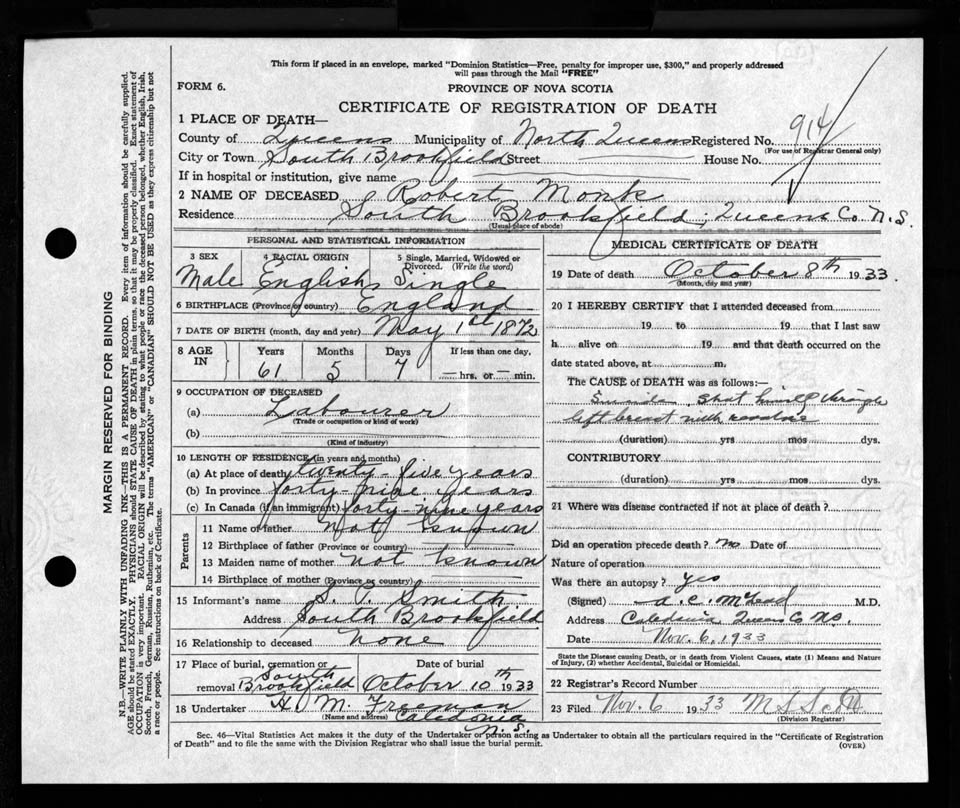 This form if placed in an envelope, marked "Dominion Statistics—Free, penalty for improper use, $300," and properly addressed
will pass through the Mail "FREE"
FORM 6.
PROVINCE OF NOVA SCOTIA
CERTIFICATE OF REGISTRATION OF DEATH
1 PLACE OF DEATH—
County of Queens Municipality of North Queens Registered No. 914
(For use of Registrar General only)
City or Town South Brookfield Street House No.
If in hospital or institution, give name
2 NAME OF DECEASED Robert Monk
Residence South Brookfield, Queens Co. N.S.
(Usual place of abode)
PERSONAL AND STATISTICAL INFORMATION
3 SEX 4 RACIAL ORIGIN 5 Single, Married, Widowed or
Divorced. (Write the word)
Male English Single
6 BIRTHPLACE (Province or country) England
7 DATE OF BIRTH (month, day and year) May 1st 1872
8 AGE IN Years Months Days If less than one day,
61 5 7 — hrs. or — min.
9 OCCUPATION OF DECEASED
(a) Labourer
(Trade or occupation or kind of work)
(b)
(Kind of industry)
10 LENGTH OF RESIDENCE (in years and months)
(a) At place of death twenty-five years
(b) In province forty-nine years
(c) In Canada (if an immigrant) forty-nine years
Parents
11 Name of father not known
12 Birthplace of father (Province or country)
13 Maiden name of mother not known
14 Birthplace of mother (Province or country)
15 Informant's name S. P. Smith
Address South Brookfield
16 Relationship to deceased none
17 Place of burial, cremation or removal South Brookfield
Date of burial October 10th 1933
18 Undertaker H. M. Freeman
(Name and address) Caledonia
N.S.
MEDICAL CERTIFICATE OF DEATH
19 Date of death October 8th 1933
(Month, day and year)
20 I HEREBY CERTIFY that I attended deceased from
19 to 19 that I last saw
h alive on 19 and that death occurred on the
date stated above, at m.
The CAUSE of DEATH was as follows:—
Suicide shot himself through
left breast with revolver
(duration) yrs mos dys.
CONTRIBUTORY
(duration) yrs mos dys.
21 Where was disease contracted if not at place of death?
Did an operation precede death? no Date of
Nature of operation
Was there an autopsy? yes
(Signed) A. C. McLeod M.D.
Address Caledonia Queens Co NS.
Date Nov. 6, 1933
State the Disease causing Death, or in death from Violent Causes, state (1) Means and Nature
of Injury, (2) whether Accidental, Suicidal or Homicidal.
22 Registrar's Record Number
23 Filed Nov. 6 1933
(Division Registrar)
Sec. 46—Vital Statistics Act makes it the duty of the Undertaker or person acting as Undertaker to obtain all the particulars required in the "Certificate of Registration
of Death" and to file the same with the Division Registrar who shall issue the burial permit.
(OVER)
MARGIN RESERVED FOR BINDING
N.B.—WRITE PLAINLY WITH UNFADING INK—THIS IS A PERMANENT RECORD. Every item of information should be carefully supplied.
AGE should be stated EXACTLY. PHYSICIANS should STATE CAUSE OF DEATH in plain terms, so that it may be properly classified. Exact statement of
OCCUPATION is very important. RACIAL ORIGIN will be described by stating to what people or race the deceased person belonged, whether English, Irish,
Scotch, French, German, Russian, Ruthenian, etc. The terms "AMERICAN" or "CANADIAN" SHOULD NOT BE USED as they express citizenship but not
a race or people. See instructions on back of Certificate.